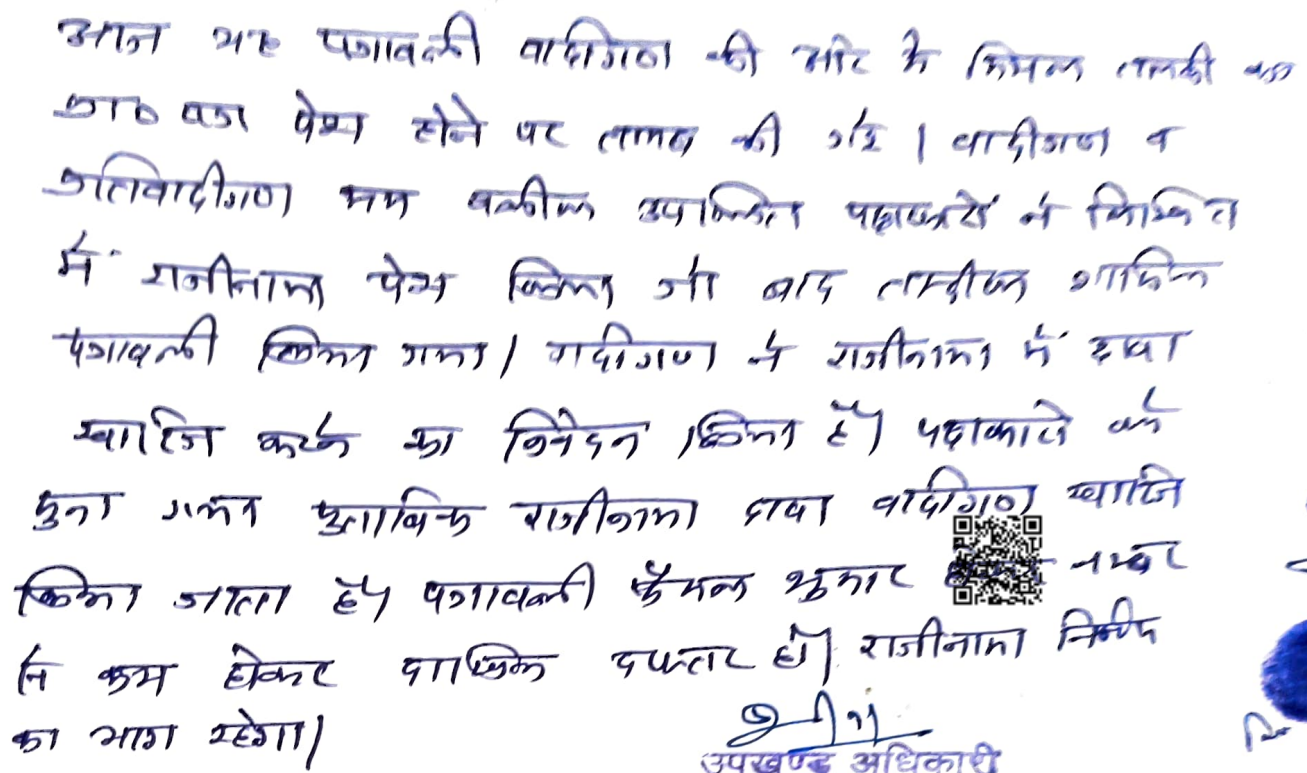 आज यह पत्रावली वादीगण की ओर से मिसल तलबी का
प्रा0 पत्र पेश होने पर तलब की गई। वादीगण व
प्रतिवादीगण मय वकील उपस्थित पक्षकारों ने लिखित
में राजीनामा पेश किया जो बाद तस्दीक शामिल
पत्रावली किया गया। वादीगण ने राजीनामा में दावा
खारिज करने का निवेदन किया है। पक्षकारो को
सुना गया मुताबिक राजीनामा दावा वादीगण खारिज
किया जाता है। पत्रावली फैसल शुमार नम्बर
से कम होकर दाखिल दफ्तर हो। राजीनामा निर्णय
का भाग रहेगा।
उपखण्ड अधिकारी